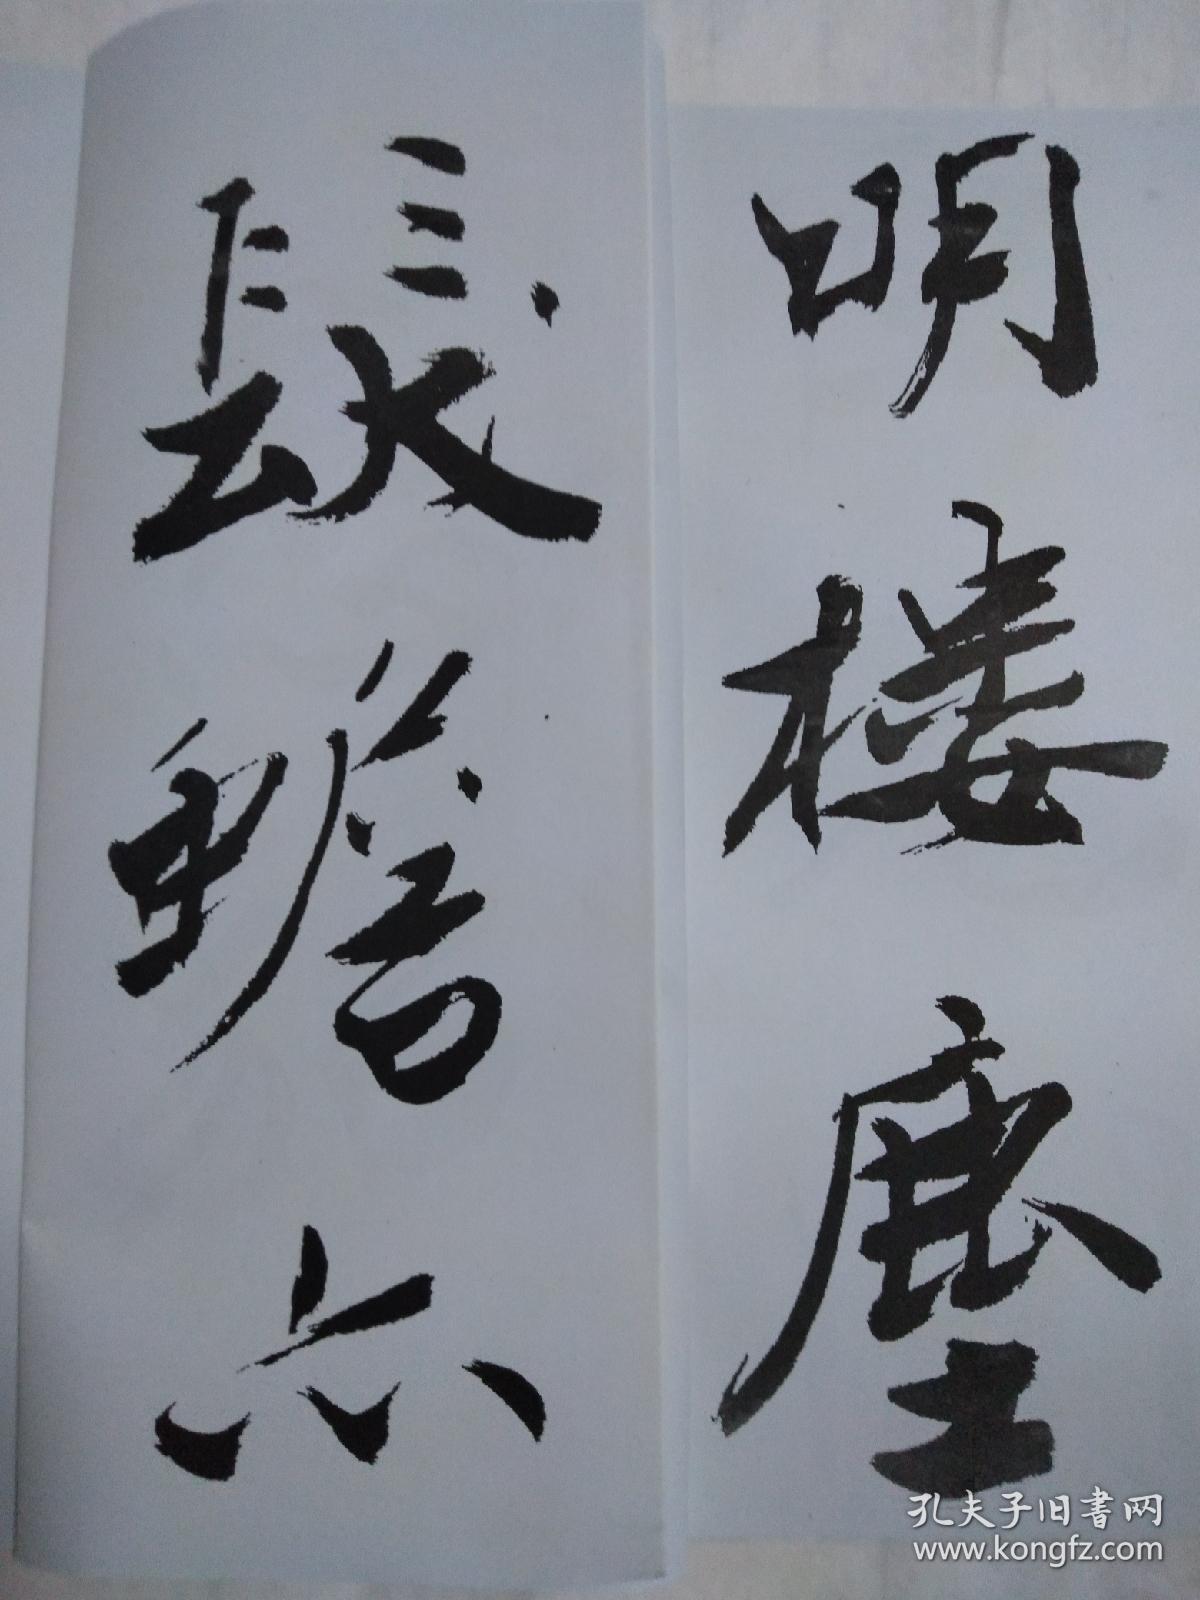 明樓塵
髮蟾六
孔夫子旧書网
www.kongfz.com